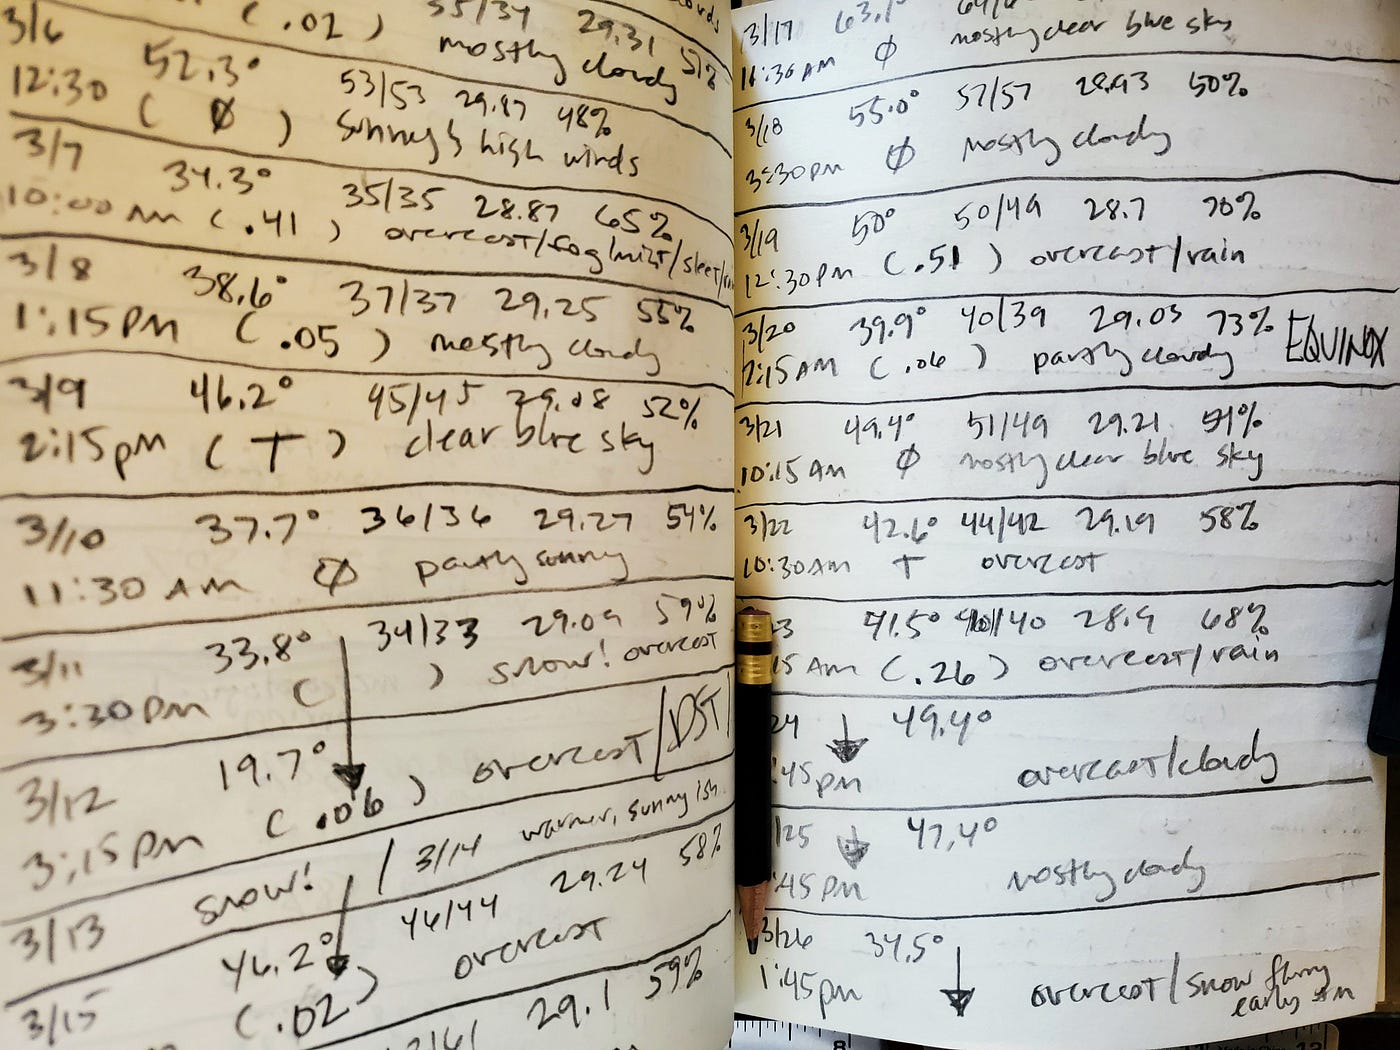 (.02) 55/34 29.31 51%
3/6 mostly cloudy
12:30 52.3° 53/53 29.87 48%
( Ø ) sunny & high winds
3/7 34.3° 35/35 28.87 65%
10:00 AM (.41) overcast/fog/mist/sleet/
3/8 38.6° 37/37 29.25 55%
1:15PM (.05) mostly cloudy
3/9 46.2° 45/45 29.08 52%
2:15pm (T) clear blue sky
3/10 37.7° 36/36 29.27 54%
11:30 AM Ø partly sunny
3/11 33.8° 34/33 29.09 59%
3:30PM ( ) snow! overcast
3/12 19.7° overcast/DST
3:15PM (.06)
3/13 snow! / 3/14 warmer, sunny ish
3/15 46.2° 46/44 29.24 58%
(.02) overcast
29.1 59%
3/17 63.1°
11:30 AM Ø mostly clear blue sky
3/18 55.0° 57/57 28.93 50%
3:30PM Ø mostly cloudy
3/19 50° 50/49 28.7 70%
12:30PM (.51) overcast/rain
3/20 39.9° 40/39 29.05 73% EQUINOX
2:15AM (.06) partly cloudy
3/21 49.4° 51/49 29.21 51%
10:15 AM Ø mostly clear blue sky
3/22 42.6° 44/42 29.19 58%
10:30AM T overcast
23 41.5° 40/40 28.9 68%
15 AM (.26) overcast/rain
24 49.4°
:45pm overcast/cloudy
/25 47.4°
:45PM mostly cloudy
3/26 34.5°
1:45pm overcast/snow flurry
early AM
8 12